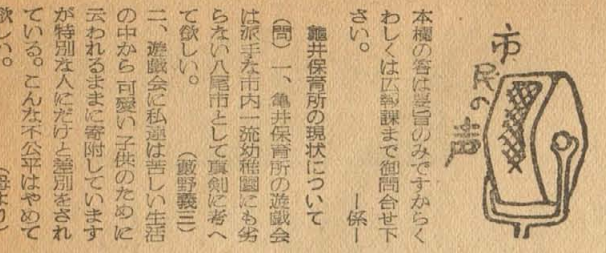 市民の声
本欄の答は要旨のみですからく
わしくは広報課まで御問合せ下
さい。　　　　　―係―
龜井保育所の現状について
(問) 一、亀井保育所の遊戯会
は派手な市内一流幼稚園にも劣
らない八尾市として真剣に考へ
て欲しい。　　(飯野義三)
二、遊戯会に私達は苦しい生活
の中から可愛い子供のために
云われるままに寄附しています
が特別な人にだけと差別をされ
ている。こんな不公平はやめて
欲しい。　　(母より)